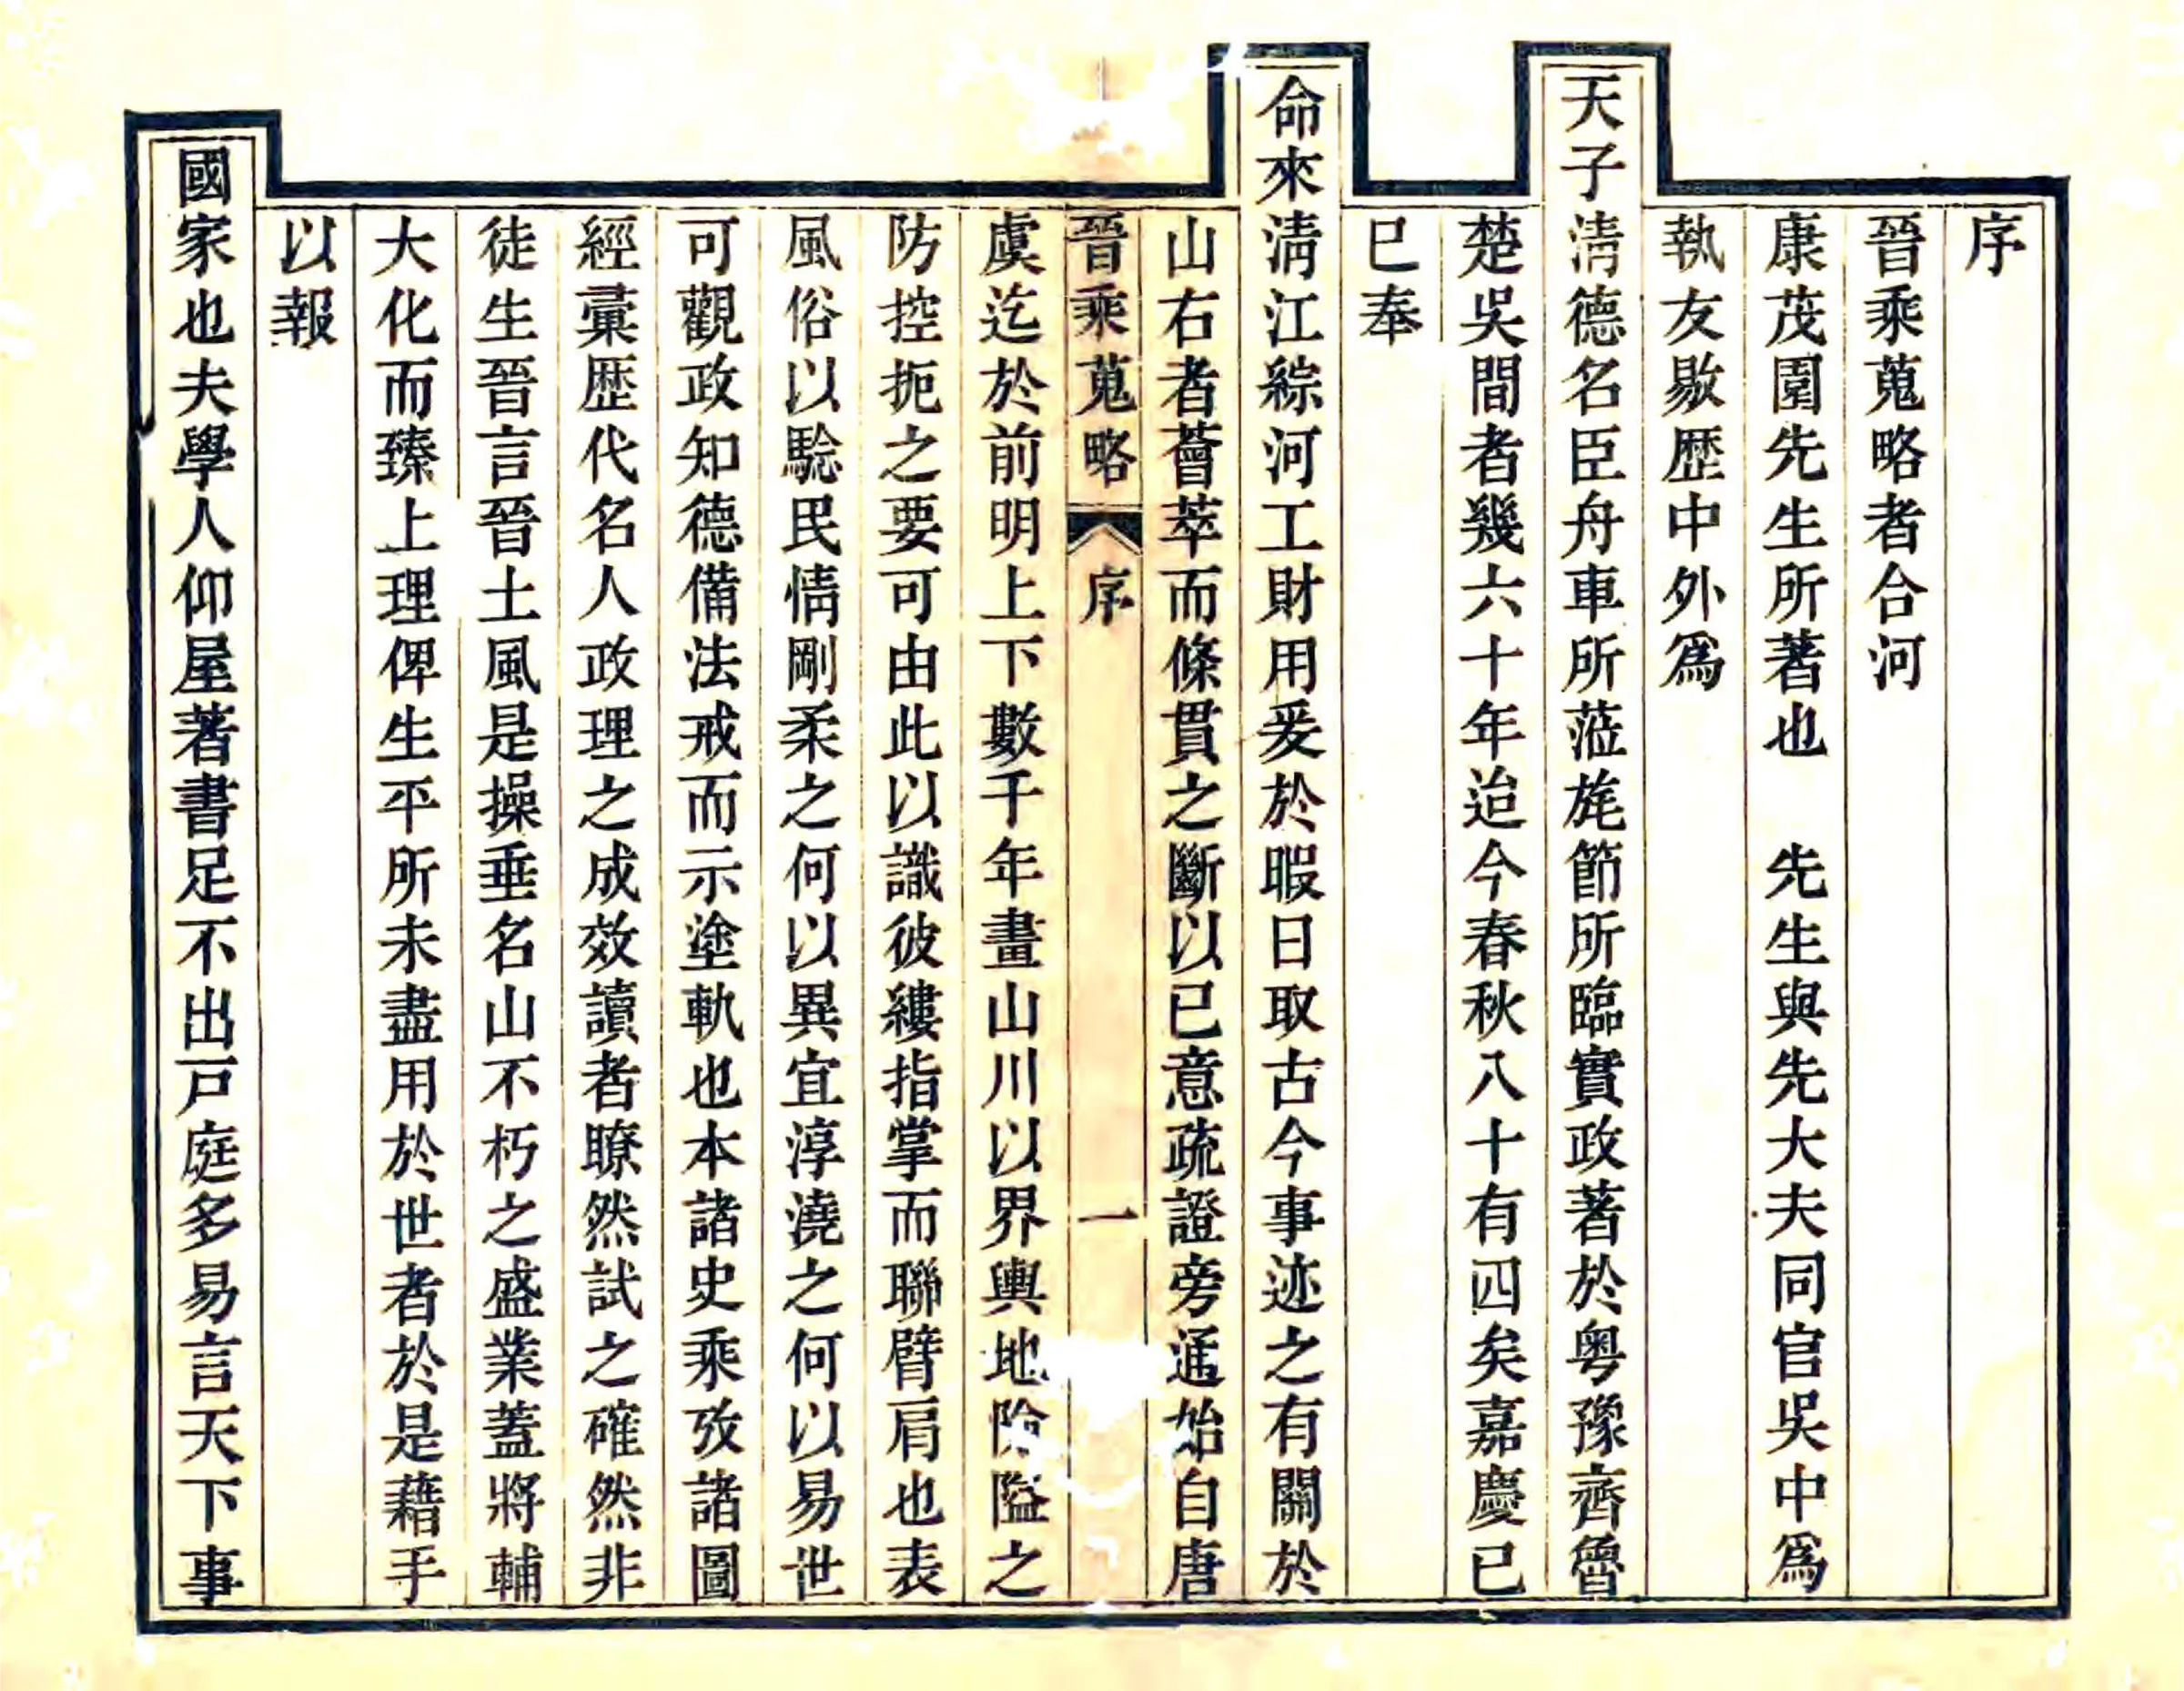 序
晉乘蒐略者合河
康茂園先生所著也　先生與先大夫同官吳中爲
執友敭歴中外爲
天子淸德名臣舟車所蒞旄節所臨實政著於粤豫齊魯
楚吳間者幾六十年迨今春秋八十有四矣嘉慶已
巳奉
命來淸江綜河工財用爰於暇日取古今事迹之有關於
山右者薈萃而條貫之斷以已意疏證旁通始自唐
晉乘蒐略　序　一
虞迄於前明上下數千年畫山川以界輿地險隘之
防控扼之要可由此以識彼縷指掌而聯臂肩也表
風俗以騐民情剛柔之何以異宜淳澆之何以易世
可觀政知德備法戒而示塗軌也本諸史乘攷諸圖
經彚歴代名人政理之成效讀者瞭然試之確然非
徒生晉言晉土風是操垂名山不朽之盛業蓋將輔
大化而臻上理俾生平所未盡用於世者於是藉手
以報
國家也夫學人仰屋著書足不出戸庭多易言天下事